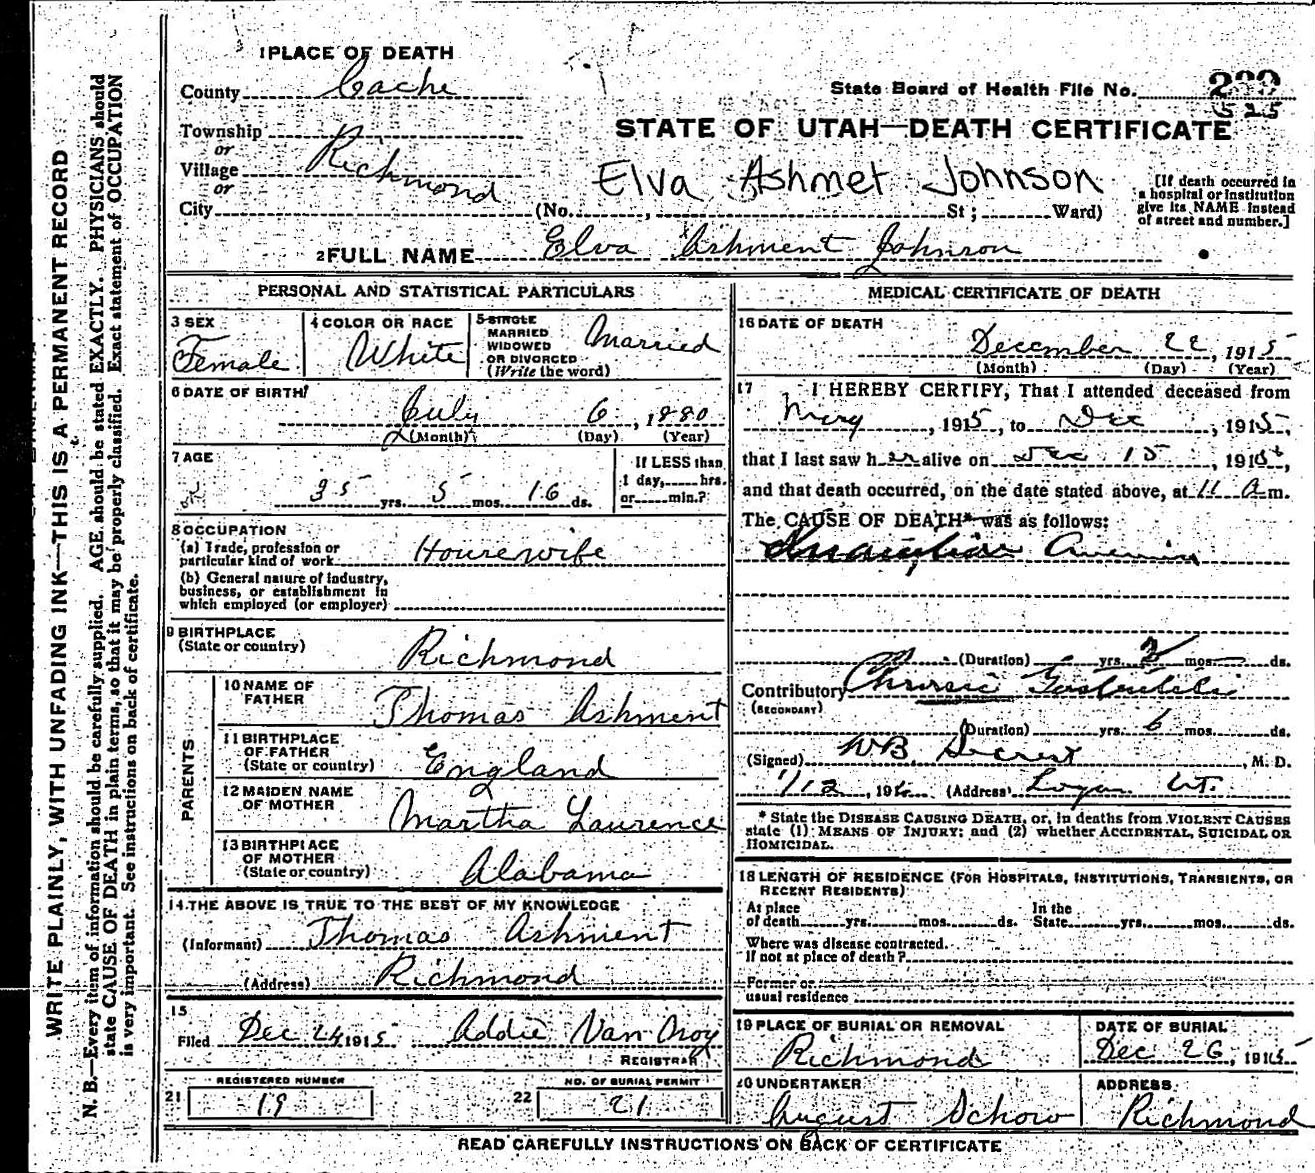 1 PLACE OF DEATH
County Cache
Township
or
Village Richmond
or
City
State Board of Health File No.
525
STATE OF UTAH—DEATH CERTIFICATE
Elva Ashmet Johnson
(No. , St ; Ward)
[If death occurred in
a hospital or institution
give its NAME instead
of street and number.]
2 FULL NAME Elva Ashment Johnson
WRITE PLAINLY, WITH UNFADING INK—THIS IS A PERMANENT RECORD
N. B.—Every item of information should be carefully supplied. AGE should be stated EXACTLY. PHYSICIANS should
state CAUSE OF DEATH in plain terms, so that it may be properly classified. Exact statement of OCCUPATION
is very important. See instructions on back of certificate.
PERSONAL AND STATISTICAL PARTICULARS
3 SEX
Female
4 COLOR OR RACE
White
5 SINGLE
MARRIED
WIDOWED
OR DIVORCED
(Write the word)
Married
6 DATE OF BIRTH
July 6, 1880
(Month) (Day) (Year)
7 AGE
35 yrs. 5 mos. 16 ds.
If LESS than
1 day, hrs.
or min.?
8 OCCUPATION
(a) Trade, profession or
particular kind of work Housewife
(b) General nature of industry,
business, or establishment in
which employed (or employer)
9 BIRTHPLACE
(State or country) Richmond
PARENTS
10 NAME OF
FATHER Thomas Ashment
11 BIRTHPLACE
OF FATHER
(State or country) England
12 MAIDEN NAME
OF MOTHER Martha Laurence
13 BIRTHPLACE
OF MOTHER
(State or country) Alabama
14 THE ABOVE IS TRUE TO THE BEST OF MY KNOWLEDGE
(Informant) Thomas Ashment
(Address) Richmond
15
Filed Dec 24, 1915 Addie Van Oroy
REGISTRAR
REGISTERED NUMBER
21 19
NO. OF BURIAL PERMIT
22 21
MEDICAL CERTIFICATE OF DEATH
16 DATE OF DEATH
December 22, 1915
(Month) (Day) (Year)
17 I HEREBY CERTIFY, That I attended deceased from
May, 1915, to Dec, 1915,
that I last saw her alive on Dec 15, 1915,
and that death occurred, on the date stated above, at 11 a m.
The CAUSE OF DEATH* was as follows:
(Duration) yrs. mos. ds.
Contributory Chronic
(SECONDARY)
(Duration) yrs. 6 mos. ds.
(Signed) WB , M. D.
1/12, 191 (Address) Logan Ut.
* State the DISEASE CAUSING DEATH, or, in deaths from VIOLENT CAUSES
state (1) MEANS OF INJURY; and (2) whether ACCIDENTAL, SUICIDAL OR
HOMICIDAL.
18 LENGTH OF RESIDENCE (FOR HOSPITALS, INSTITUTIONS, TRANSIENTS, OR
RECENT RESIDENTS)
At place
of death yrs. mos. ds.
In the
State yrs. mos. ds.
Where was disease contracted.
If not at place of death?
Former or
usual residence
19 PLACE OF BURIAL OR REMOVAL
Richmond
DATE OF BURIAL
Dec 26, 1915
20 UNDERTAKER
August Schow
ADDRESS
Richmond
READ CAREFULLY INSTRUCTIONS ON BACK OF CERTIFICATE